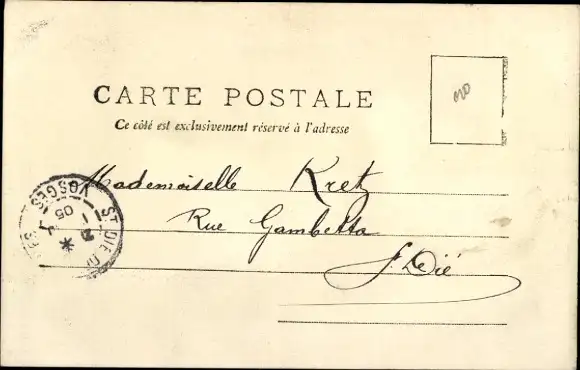 CARTE POSTALE
Ce côté est exclusivement réservé à l'adresse
Mademoiselle Kretz
Rue Gambetta
St. Dié
ST DIE
VOSGES
05